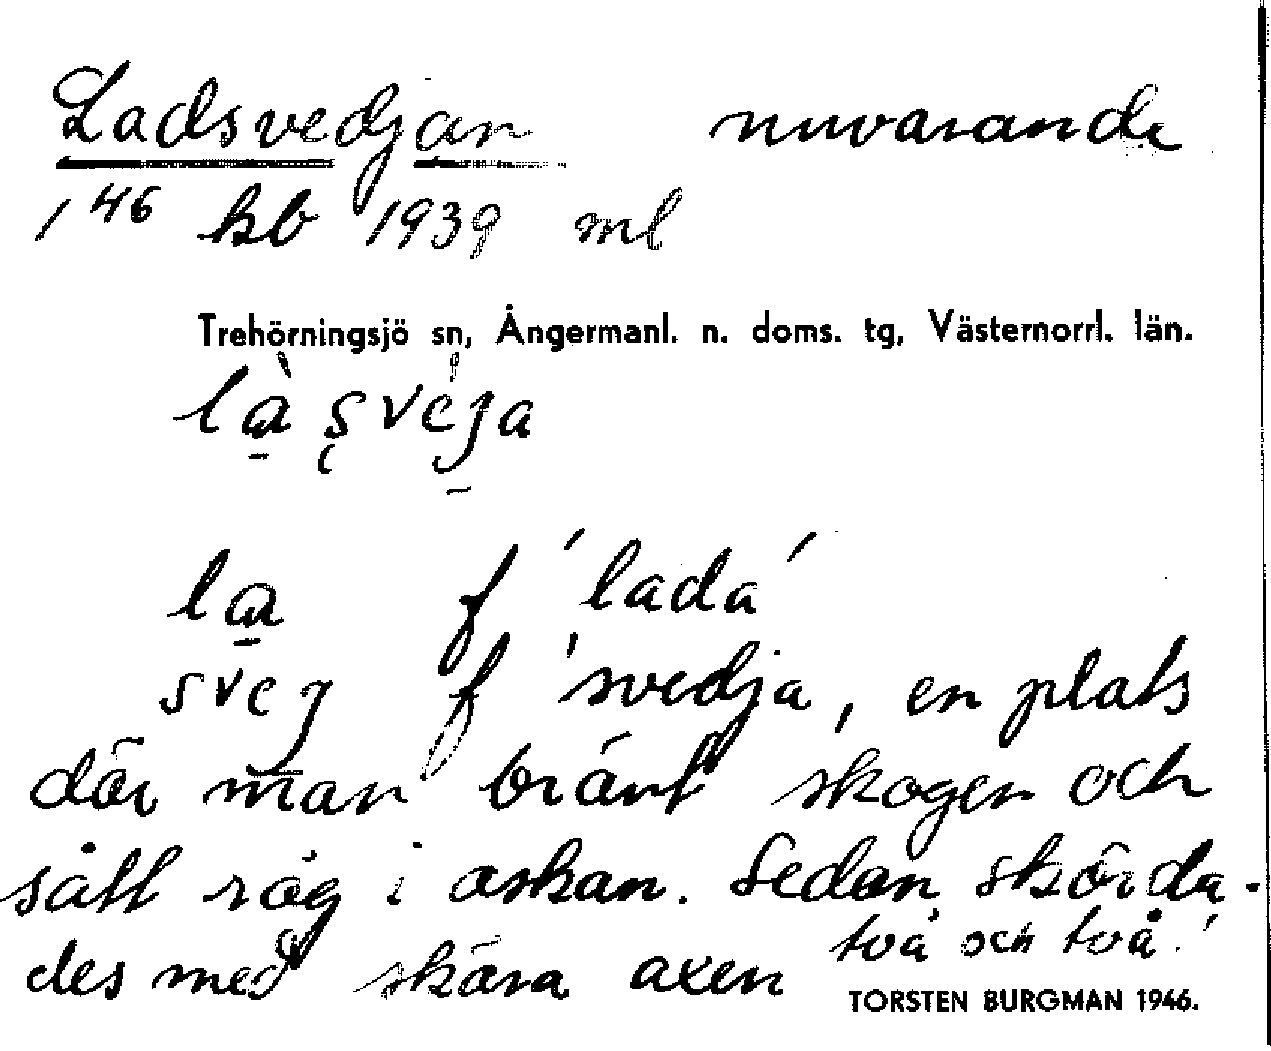 Ladsvedjan nuvarande
1⁴⁶ kb 1939 ml
Trehörningsjö sn, Ångermanl. n. doms. tg, Västernorrl. län.
la f 'lada'
svej f 'svedja, en plats
där man bränt skogen och
sått råg i askan. Sedan skörda-
des med skära axen två och två.'
TORSTEN BURGMAN 1946.